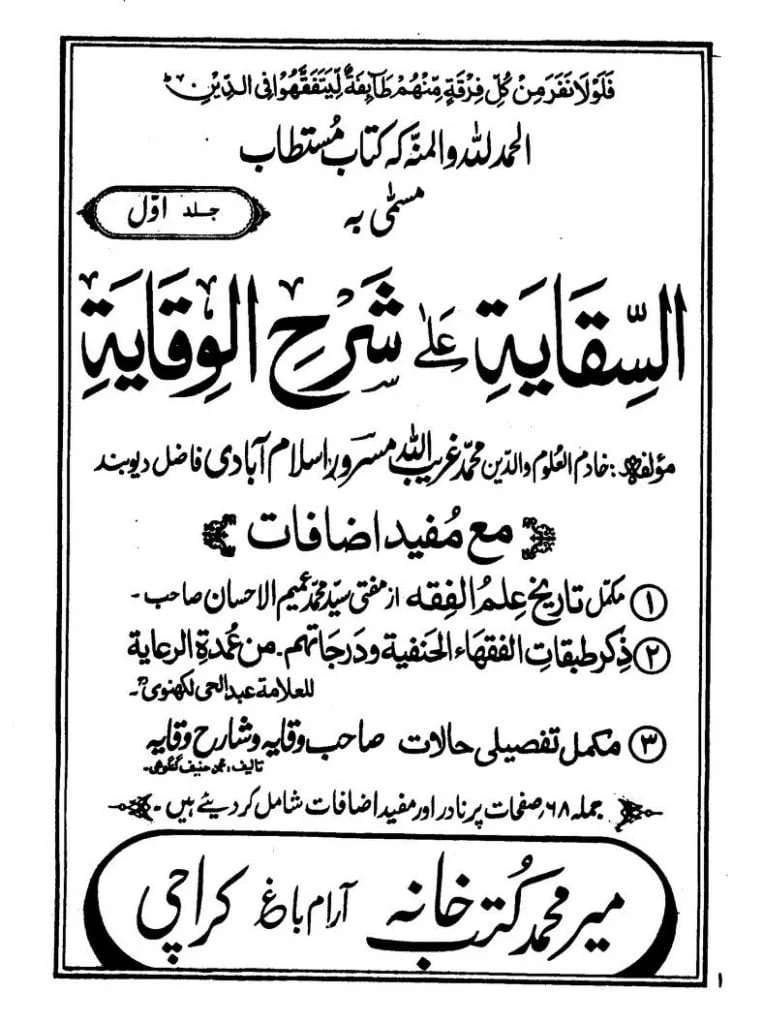 فَلَوْلَا نَفَرَ مِنْ كُلِّ فِرْقَةٍ مِّنْهُمْ طَآئِفَةٌ لِّيَتَفَقَّهُوْا فِى الدِّيْنِ ط
الحمد للہ والمنہ کہ کتاب مُستطاب
مسمّٰی بہ
جلد اوّل
السِّقَايَةِ عَلٰی شَرْحِ الْوِقَايَةِ
مؤلفہ: خادم العلوم والدین محمد غریب اللہ مسرور اسلام آبادی فاضل دیوبند
مع مُفید اضافات
① مکمل تاریخ عِلمُ الفِقہ از مفتی سیّد محمد عمیم الاحسان صاحب۔
② ذِکر طبقاتِ الفقهاء الحَنفية ودَرجَاتهم۔ من عُمدَةِ الرعاية
للعلامة عبد الحی لکھنویؒ۔
③ مکمل تفصیلی حالات صاحب وقایہ وشارح وقایہ
تالیف: محمد حنیف گنگوہی۔
جملہ ۶۸؍صفحات پر نادر اور مفید اضافات شامل کردیئے ہیں۔
میر محمد کُتب خانہ آرام باغ کراچی
۱